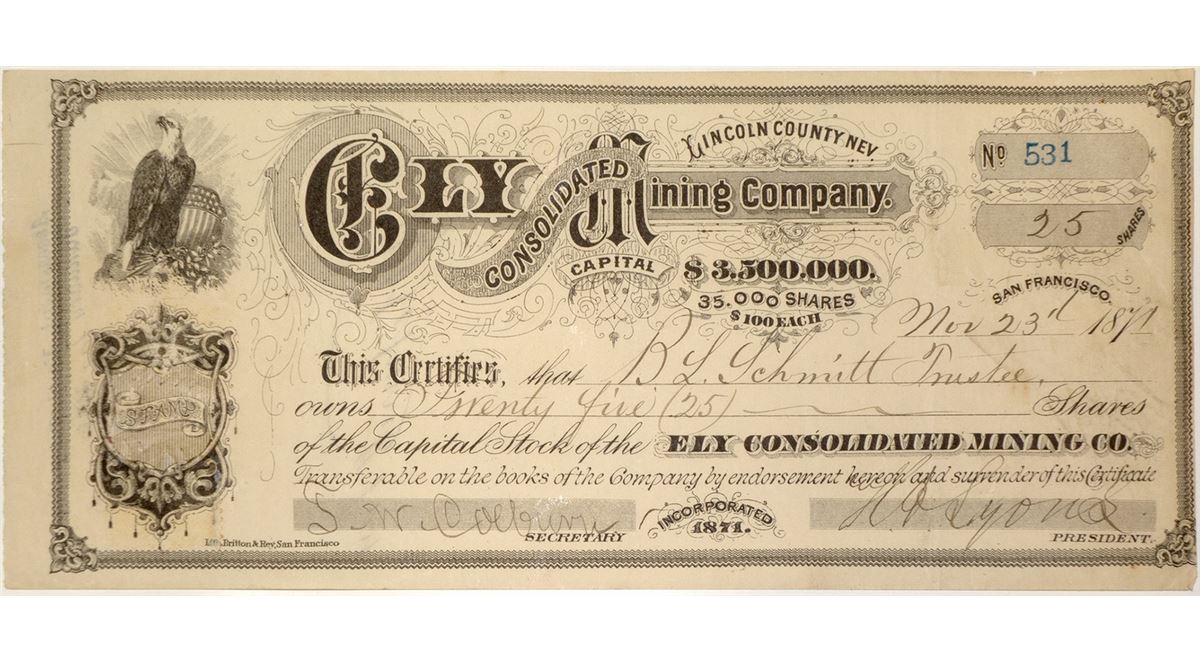 ELY CONSOLIDATED Mining Company.
LINCOLN COUNTY NEV
CAPITAL $3.500.000.
35.000 SHARES
$100 EACH
No 531
25 SHARES
SAN FRANCISCO.
Nov 23d 1871
This Certifies, that B L. Schmitt Trustee,
owns Twenty five (25) Shares
of the Capital Stock of the ELY CONSOLIDATED MINING CO.
Transferable on the books of the Company by endorsement hereon and surrender of this Certificate
STAMP
W. Colburn
SECRETARY
INCORPORATED
1871.
Lyons
PRESIDENT.
Lith. Britton & Rey, San Francisco